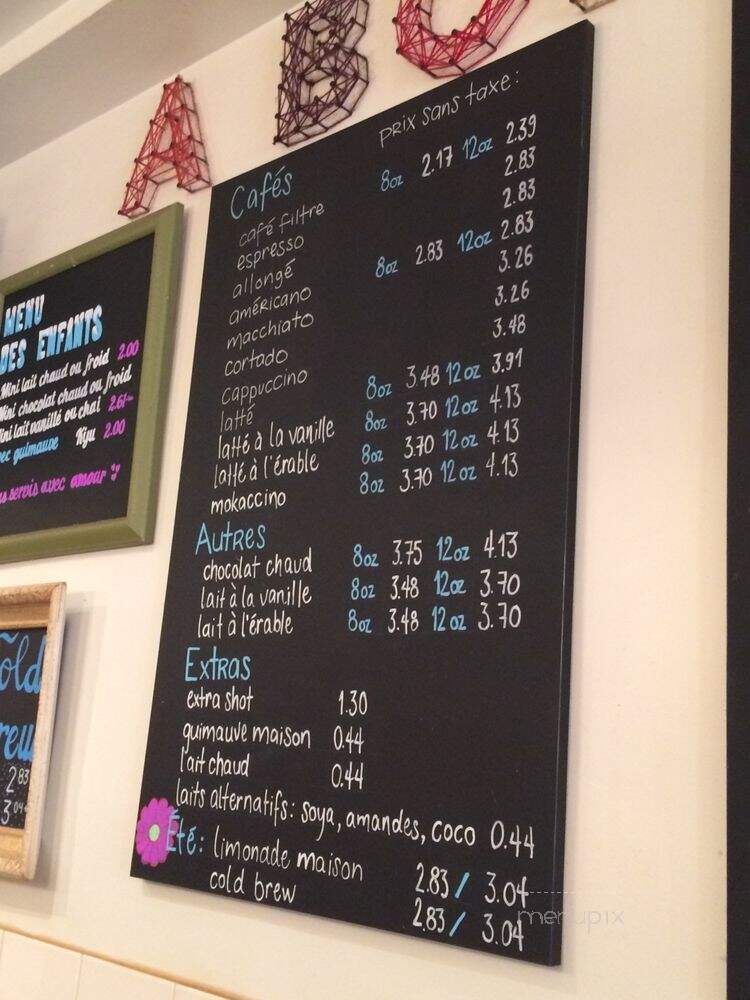 A B C
prix sans taxe:
Cafés
café filtre 8oz 2.17 12oz 2.39
espresso 2.83
allongé 2.83
américano 8oz 2.83 12oz 2.83
macchiato 3.26
cortado 3.26
cappuccino 3.48
latté 8oz 3.48 12oz 3.91
latté à la vanille 8oz 3.70 12oz 4.13
latté à l'érable 8oz 3.70 12oz 4.13
mokaccino 8oz 3.70 12oz 4.13
Autres
chocolat chaud 8oz 3.75 12oz 4.13
lait à la vanille 8oz 3.48 12oz 3.70
lait à l'érable 8oz 3.48 12oz 3.70
Extras
extra shot 1.30
guimauve maison 0.44
lait chaud 0.44
laits alternatifs: soya, amandes, coco 0.44
Été: limonade maison 2.83 / 3.04
cold brew 2.83 / 3.04
MENU
DES ENFANTS
Mini lait chaud ou froid 2.00
Mini chocolat chaud ou froid
Mini lait vanillé ou chai 2.61
avec guimauve 2.00
servis avec amour
old
2.83
3.04
menupix